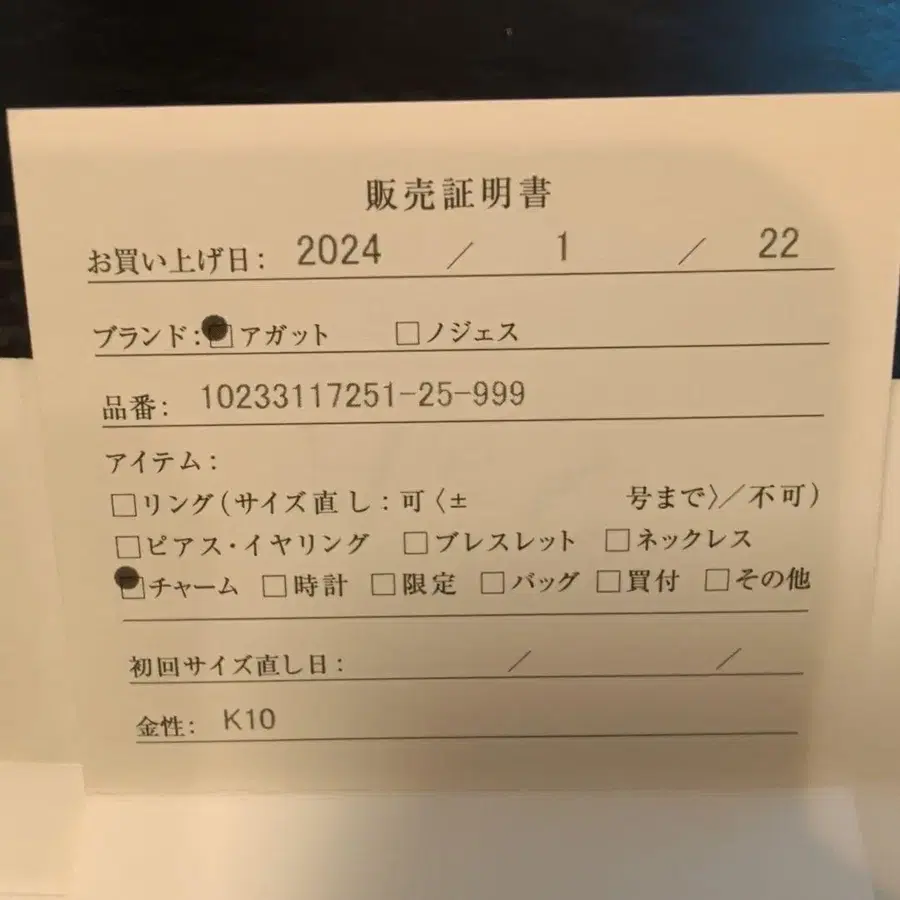 販売証明書
お買い上げ日: 2024 / 1 / 22
ブランド: □アガット □ノジェス
品番: 10233117251-25-999
アイテム:
□リング(サイズ直し:可〈± 号まで〉/不可)
□ピアス・イヤリング □ブレスレット □ネックレス
□チャーム □時計 □限定 □バッグ □買付 □その他
初回サイズ直し日: / /
金性: K10